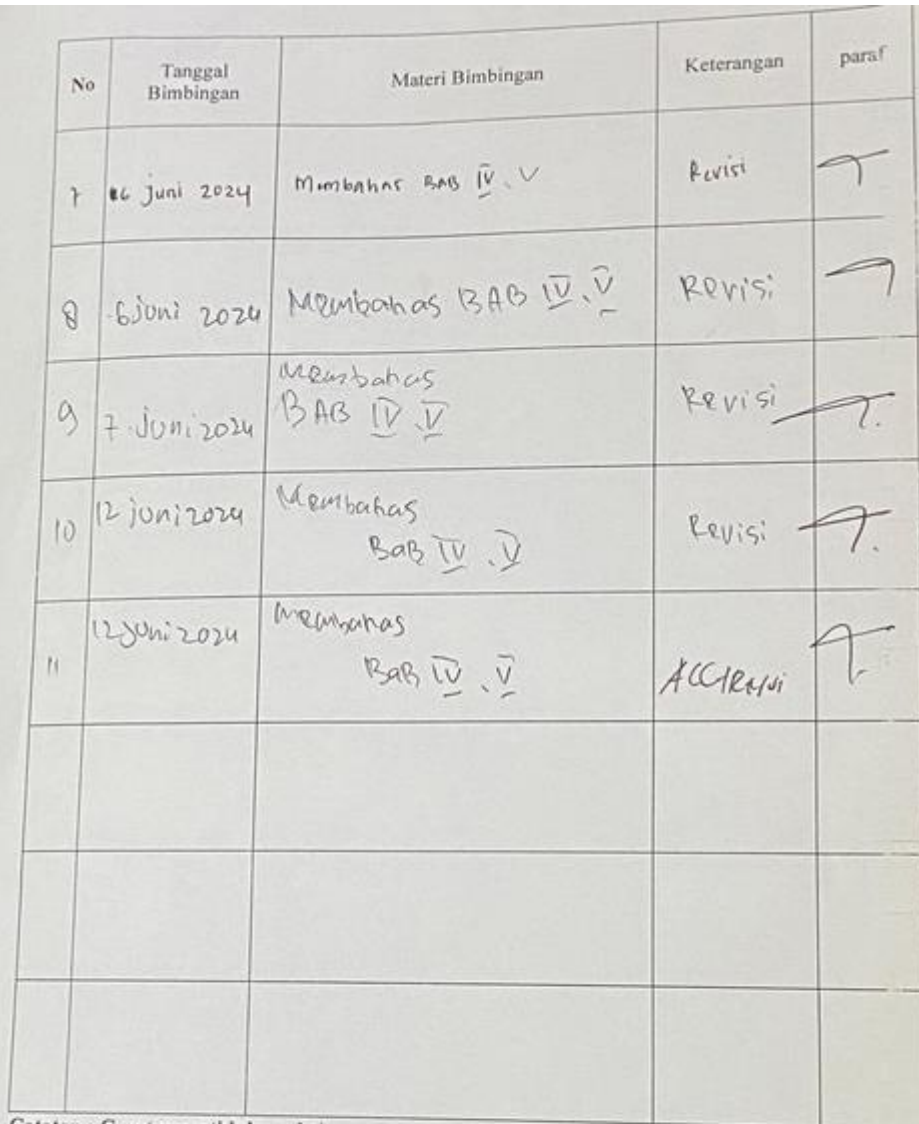 No Tanggal Bimbingan Materi Bimbingan Keterangan paraf
7 06 juni 2024 Membahas BAB IV. V Revisi
8 6 juni 2024 Membahas BAB IV. V Revisi
9 7 Juni 2024 Membahas BAB IV V Revisi
10 12 juni 2024 Membahas BaB IV . V Revisi
11 12 Juni 2024 Membahas BaB IV . V